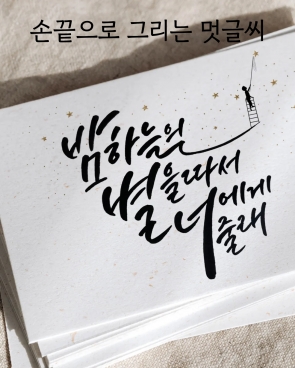 손끝으로 그리는 멋글씨
밤하늘의
별을따서
너에게
줄래